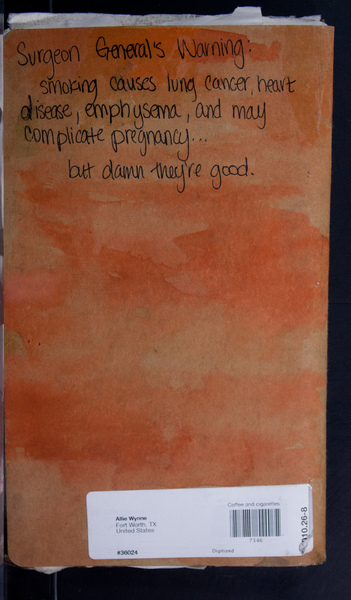 Surgeon General's Warning:
smoking causes lung cancer, heart
disease, emphysema, and may
complicate pregnancy...
but damn they're good.
Coffee and cigarettes
Allie Wynne
Fort Worth, TX
United States
7146
#36024
Digitized
10.26-8